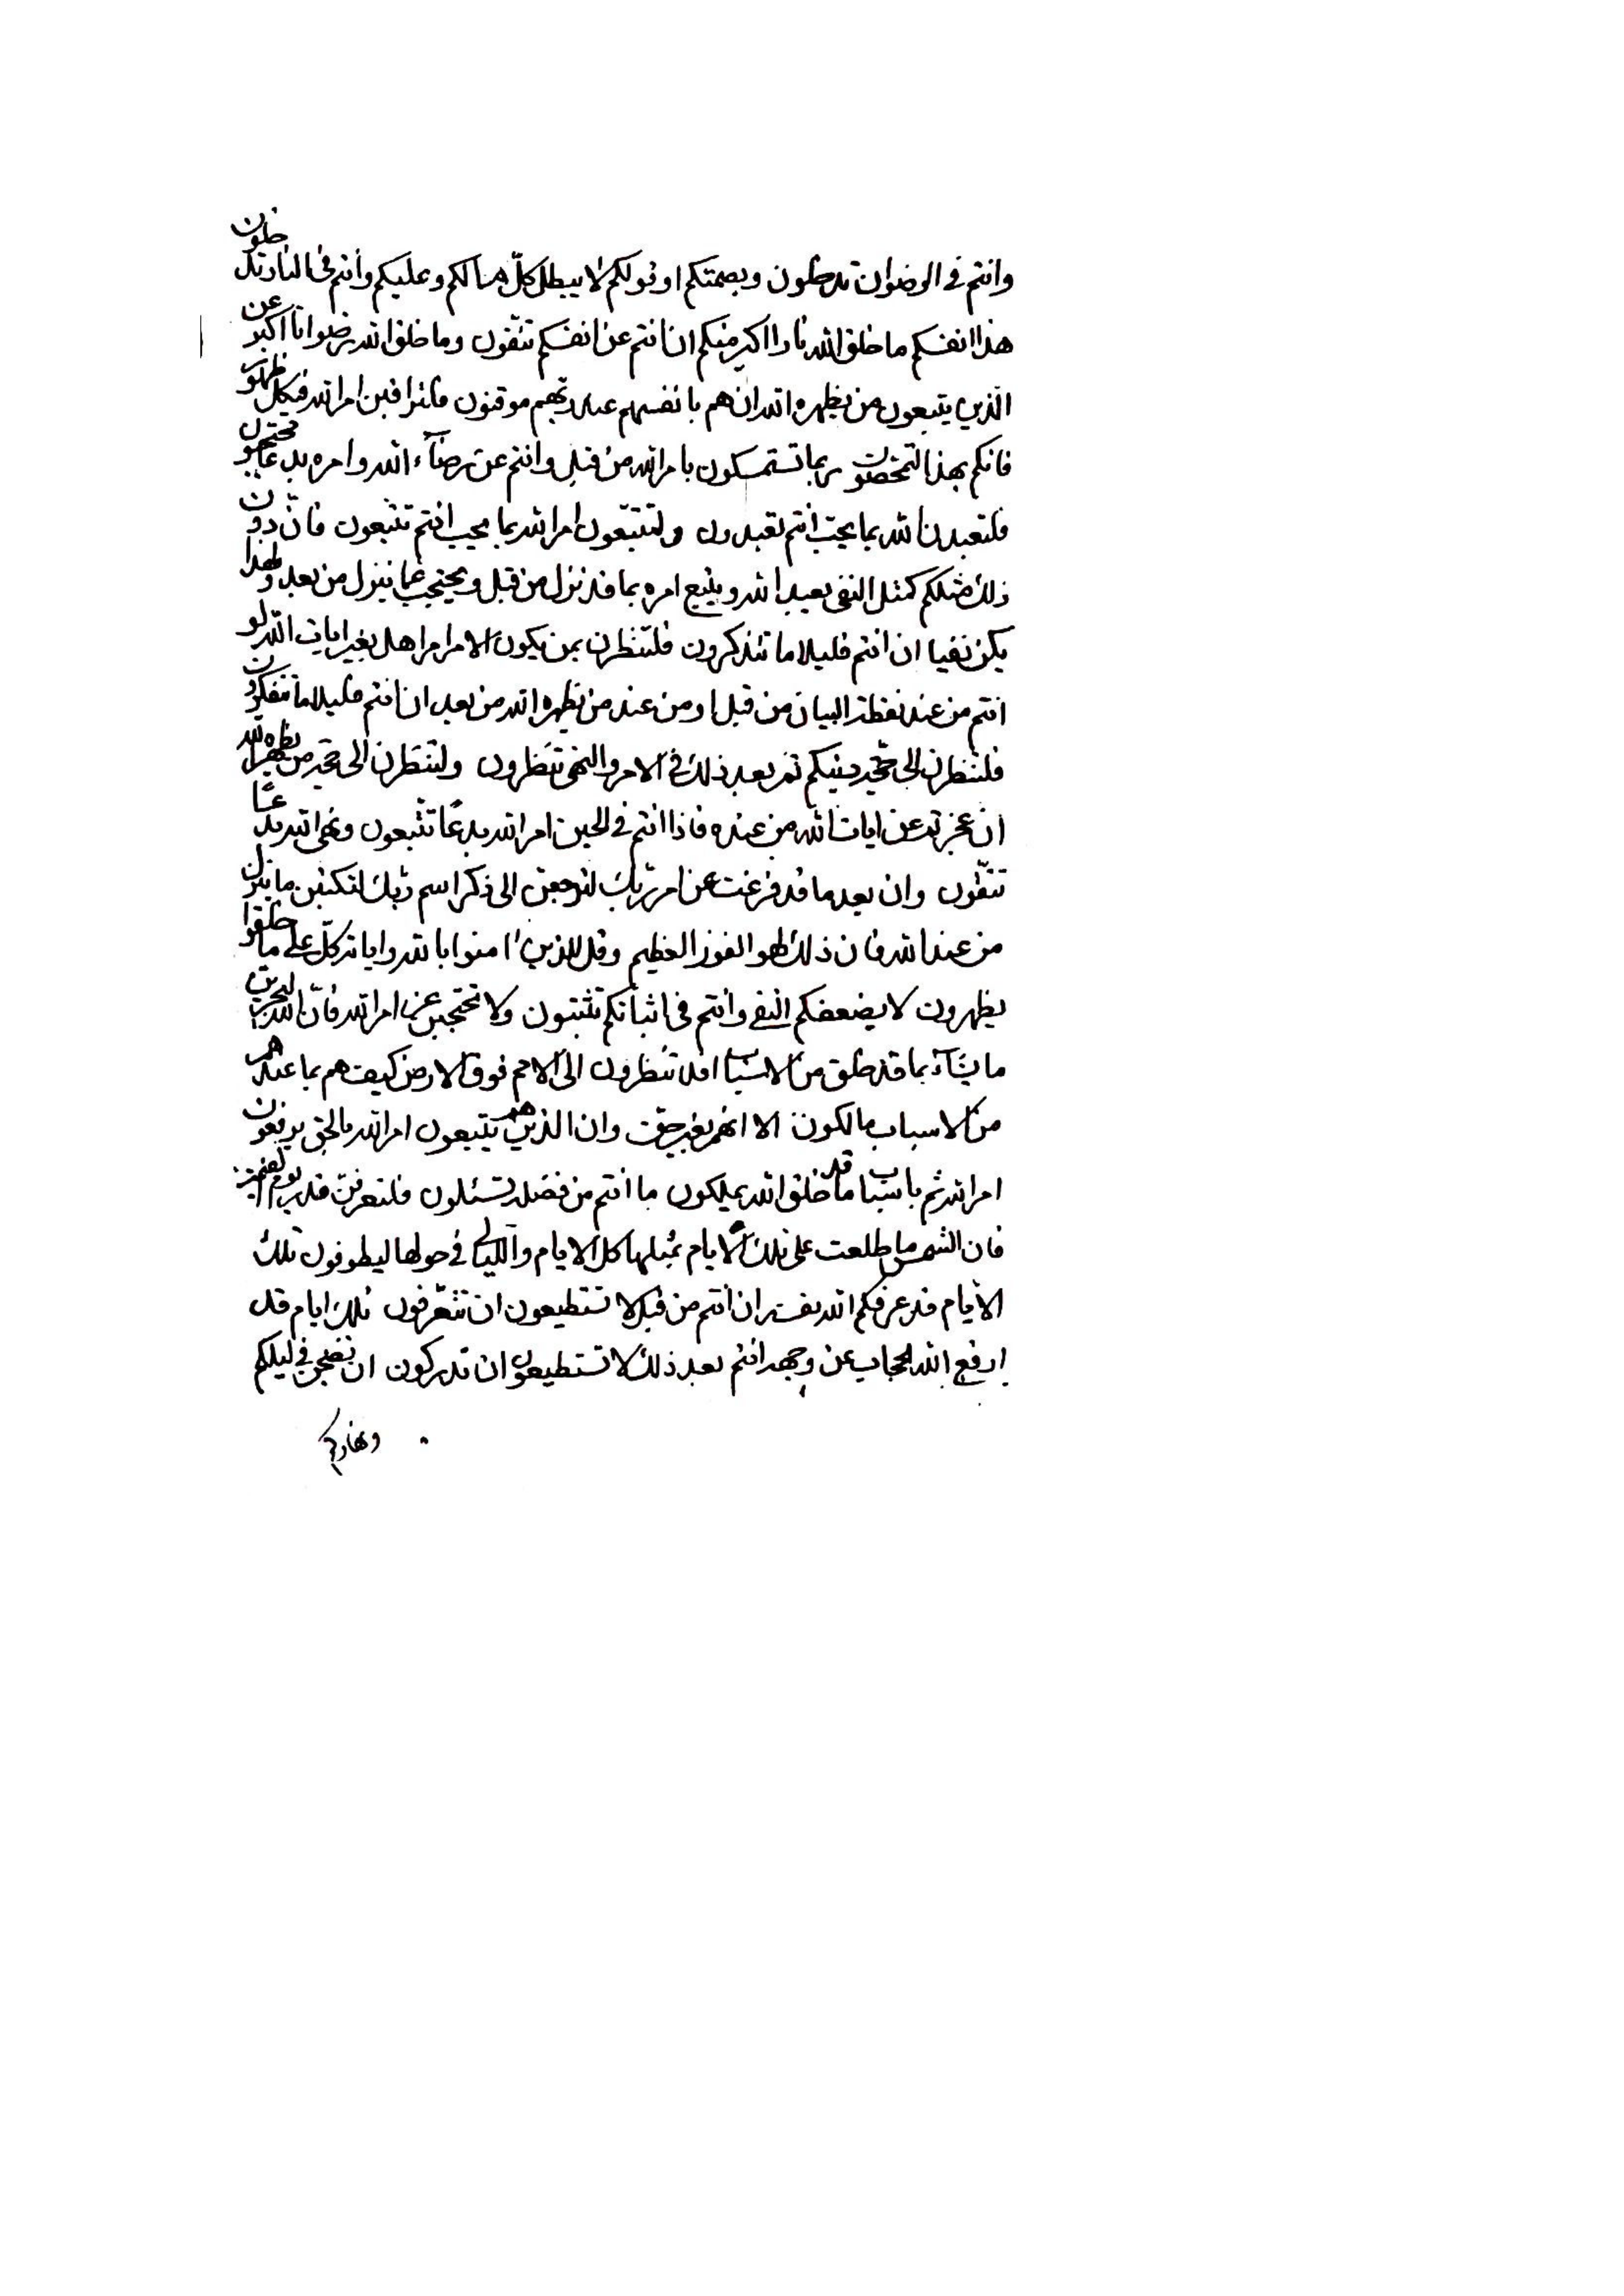 وانتم في الرضوان تدخلون وبصمتكم او قولكم لا يبطل كل هنالكم وعليكم وانتم في النار تدخلون
هذا انفسكم ما خلق الله نارا اكبر منكم ان انتم عن انفسكم تتقون وما خلق الله رضوانا اكبر عن
الذين يتبعون من يظهره الله ان هم بانفسهم عند ربهم موقنون فلتراقبن امر الله في كل ظهور
فانكم بهذا لتمحصون ربما تستمسكون بامر الله من قبل وانتم عن رضاء الله وامره بدعا محتجبون
فلتعبدن الله بما يحب انتم تعبدون ولتتبعون امر الله بما يحب انتم تتبعون فان دون
ذلك مثلكم كمثل النفي يعبد الله ويتبع امره بما قد نزل من قبل ويحتجب عما ينزل من بعد ولهذا
يكن نفيا ان انتم قليلا ما تتذكرون فلتنظرن بمن يكون الامر امرا هل بغير ايات الله لو
انتم من عند نقطة البيان من قبل او من عند من يظهره الله من بعد ان انتم قليلا ما تتفكرون
فلتنظرن الى حجة دينكم ثم بعد ذلك في الامر والنهي تنظرون ولتنظرن الى حجة من يظهره الله
ان عجزتم عن ايات الله من عنده فاذا انتم في الحين امر الله بدعا تتبعون ونهى الله بدعا
تتقون وان بعد ما قد فرغت عن امر ربك لترجعن الى ذكر اسم ربك لتكتبن ما ينزل
من عند الله فان ذلك لهو الفوز العظيم وقل للذين امنوا بالله واياته كل على ما خلقوا
يظهرون لا يضعفكم النفي وانتم في اثباتكم تثبتون ولا تحتجبن عن امر الله فان الله ليجرين
ما يشاء بما قد خلق من الاسباب افلا تنظرون الى الامم فوق الارض كيف هم بما عندهم
من الاسباب مالكون الا انهم بغير حق وان الذين هم يتبعون امر الله بالحق يرفعون
امر الله ثم باسباب ما قد خلق الله يملكون ما انتم من فضله تسئلون فلتعرفن قدر يوم القيمة
فان الشمس ما طلعت على تلك الايام بمثلها كل الايام والليالي في حولها ليطوفون تلك
الايام قد عرفكم الله نفسه ان انتم من قبل لا تستطيعون ان تتعرفون تلك ايام قد
ارفع الله الحجاب عن وجهه انتم بعد ذلك لا تستطيعون ان تدركون ان تضجن في ليلكم
ونهاركم